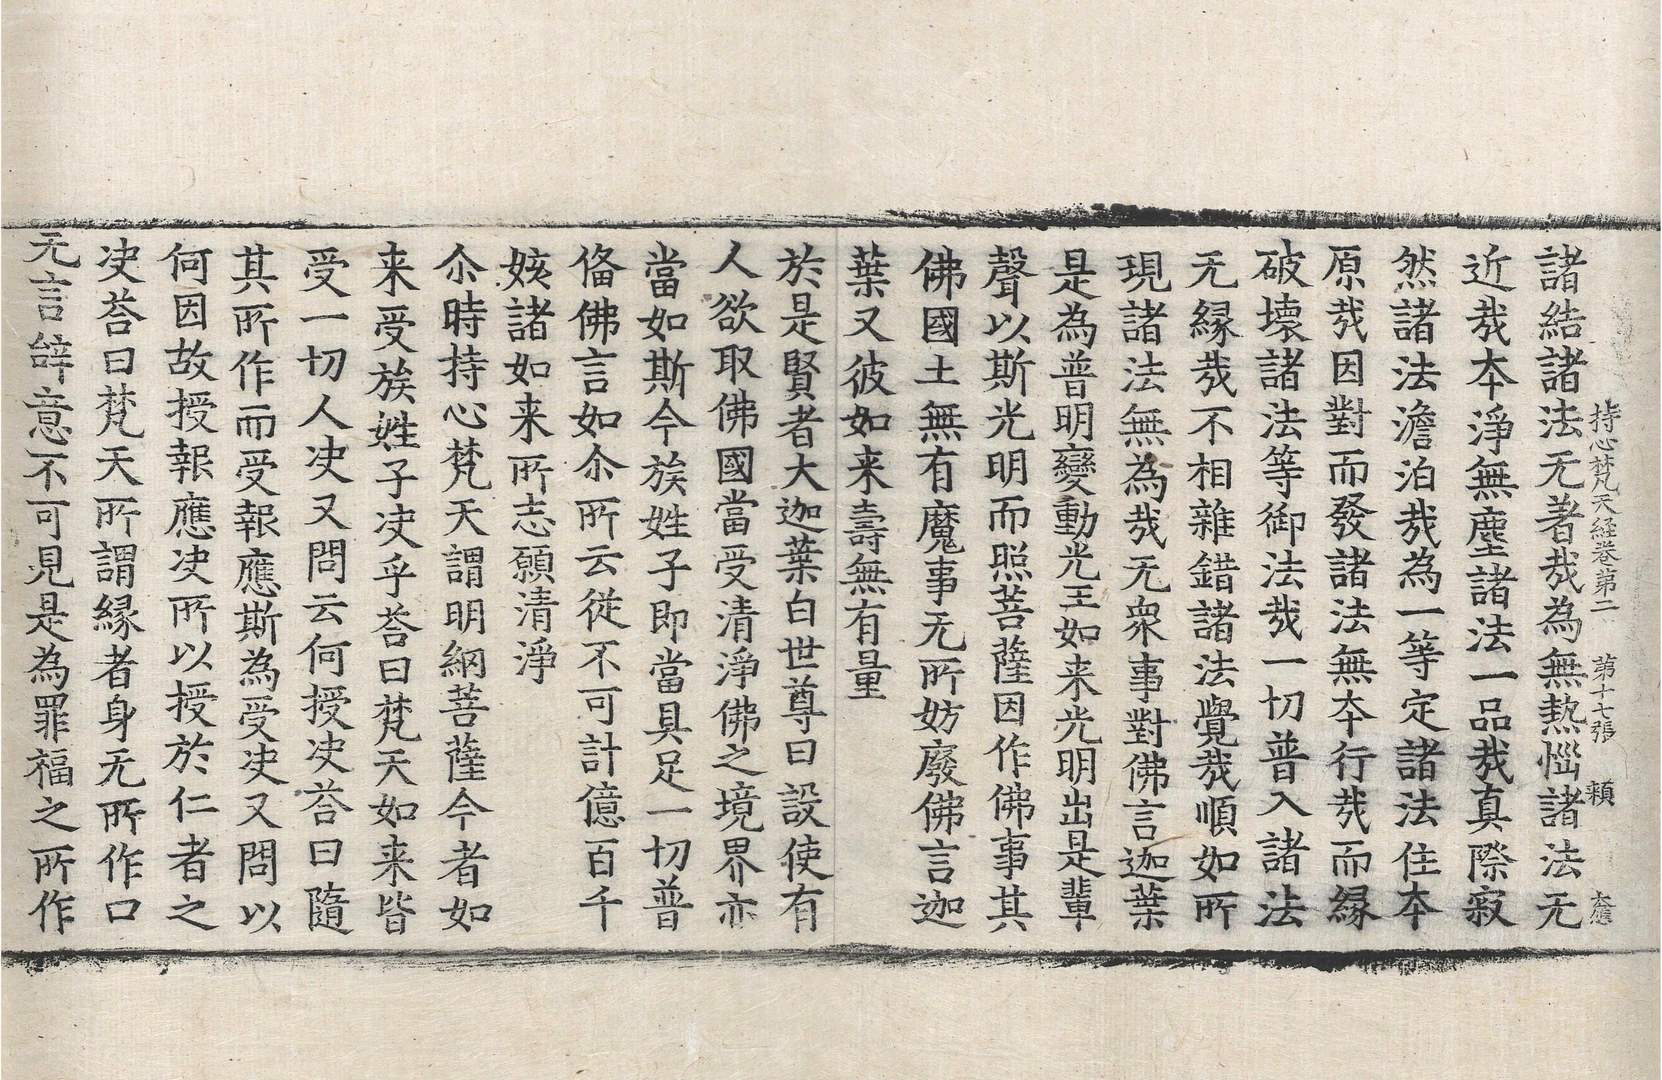 持心梵天經卷第二 第十七張 頼
諸結諸法无著哉為無熱惱諸法无
近哉本淨無塵諸法一品哉真際寂
然諸法澹泊哉為一等定諸法住本
原哉因對而發諸法無本行哉而縁
破壞諸法等御法哉一切普入諸法
无縁哉不相雜錯諸法覺哉順如所
現諸法無為哉无衆事對佛言迦葉
是為普明變動光王如来光明出是輩
聲以斯光明而照菩薩因作佛事其
佛國土無有魔事无所妨廢佛言迦
葉又彼如来壽無有量
於是賢者大迦葉白世尊曰設使有
人欲取佛國當受清淨佛之境界亦
當如斯今族姓子即當具足一切普
備佛言如尒所云從不可計億百千
姟諸如来所志願清淨
尒時持心梵天謂明網菩薩今者如
来受族姓子决乎荅曰梵天如来皆
受一切人决又問云何授决荅曰隨
其所作而受報應斯為受决又問以
何因故授報應决所以授於仁者之
决荅曰梵天所謂縁者身无所作口
无言辝意不可見是為罪福之所作